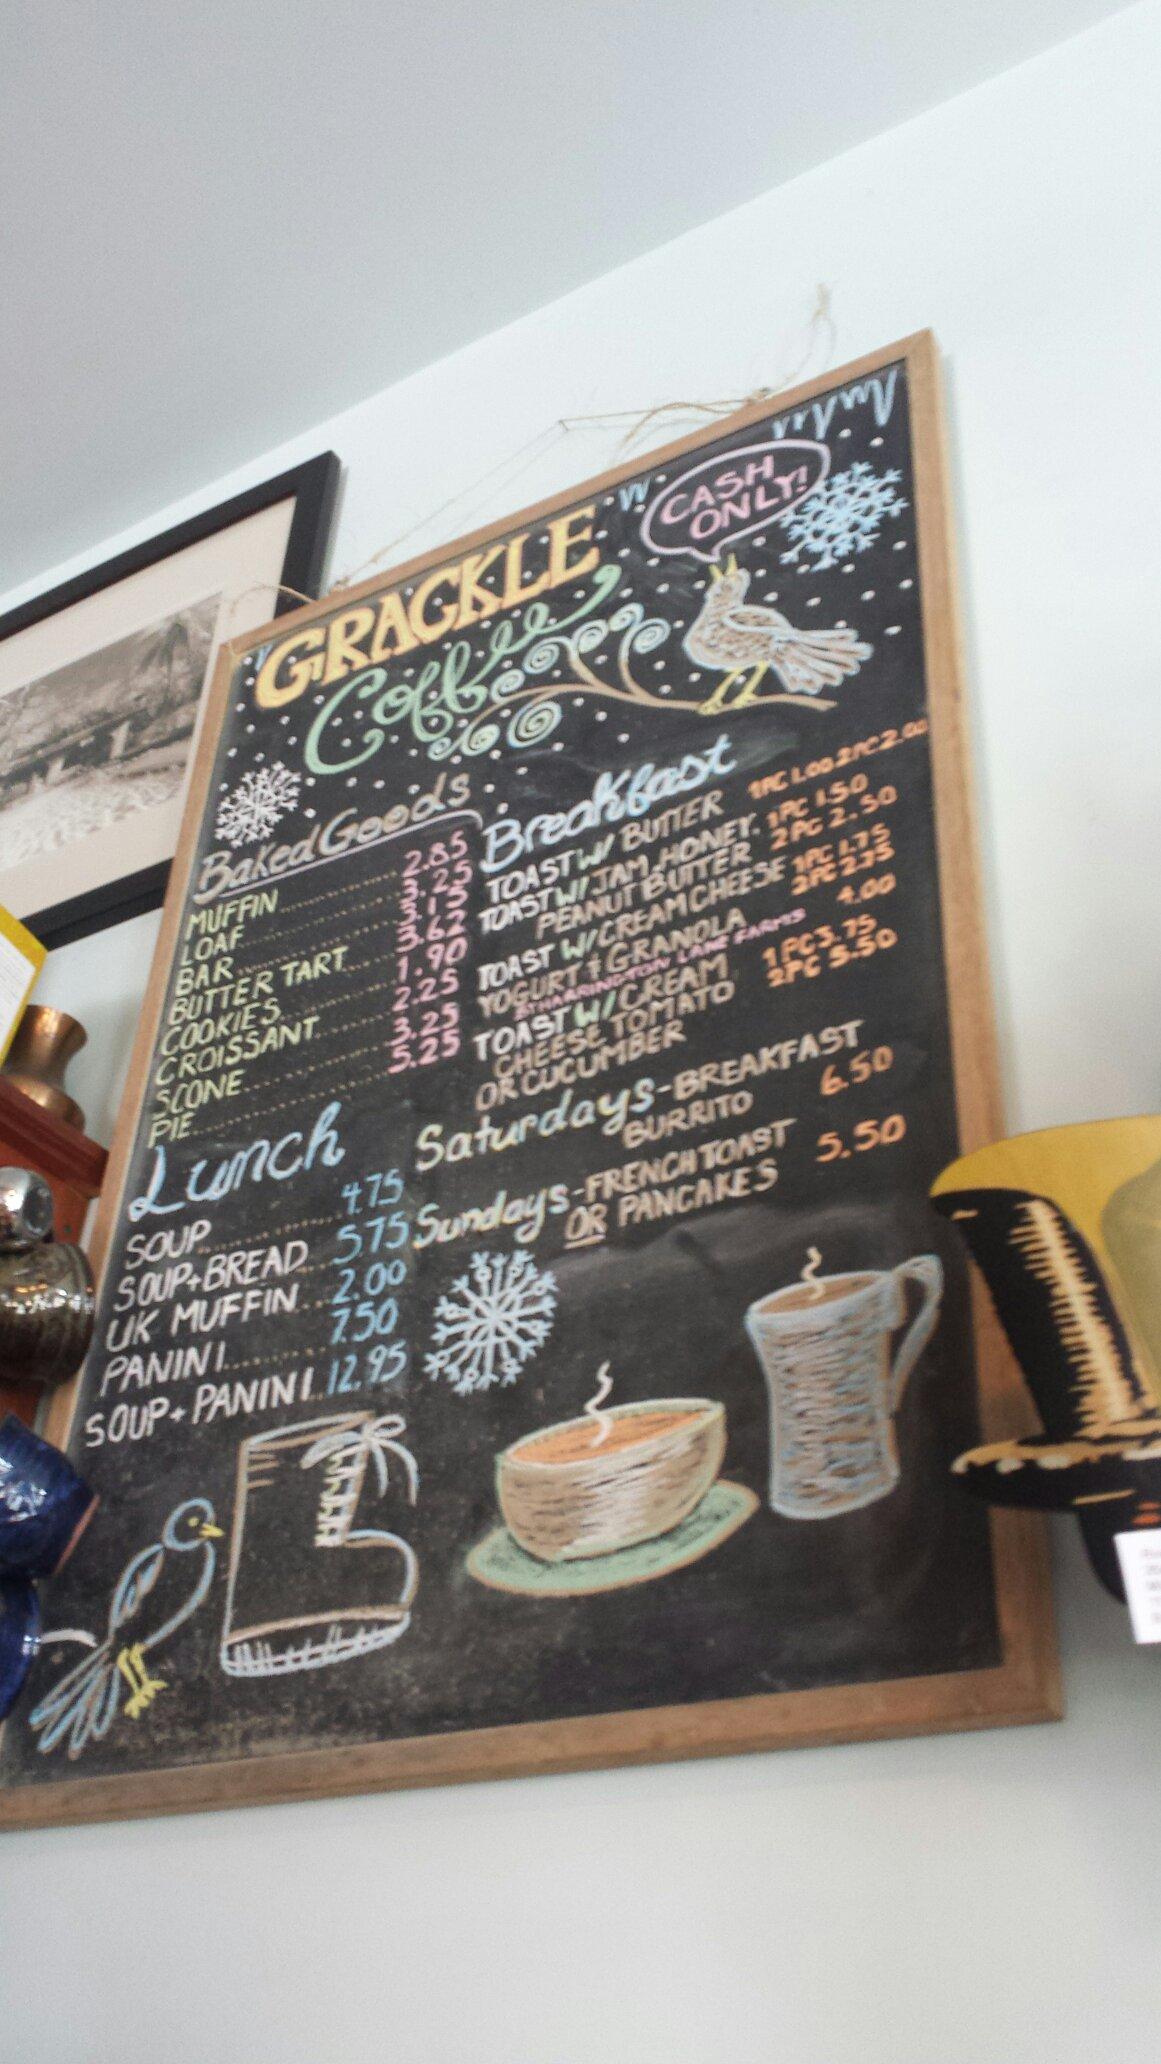 CASH
ONLY!
GRACKLE
Coffee
Baked Goods
MUFFIN 2.85
LOAF 3.25
BAR 3.15
BUTTER TART 3.62
COOKIES 1.90
CROISSANT 2.25
SCONE 3.25
PIE 5.25
Lunch
SOUP 4.75
SOUP+BREAD 5.75
UK MUFFIN 2.00
PANINI 7.50
SOUP+PANINI 12.95
Breakfast
TOAST W/ BUTTER 1PC 1.00 2PC 2.00
TOAST W/ JAM, HONEY, 1PC 1.50
PEANUT BUTTER 2PC 2.50
TOAST W/ CREAM CHEESE 1PC 1.75
2PC 2.75
YOGURT & GRANOLA 4.00
HARRINGTON LANE FARMS
TOAST W/ CREAM 1PC 3.75
CHEESE, TOMATO 2PC 5.50
OR CUCUMBER
Saturdays - BREAKFAST
BURRITO 6.50
Sundays - FRENCH TOAST
OR PANCAKES 5.50